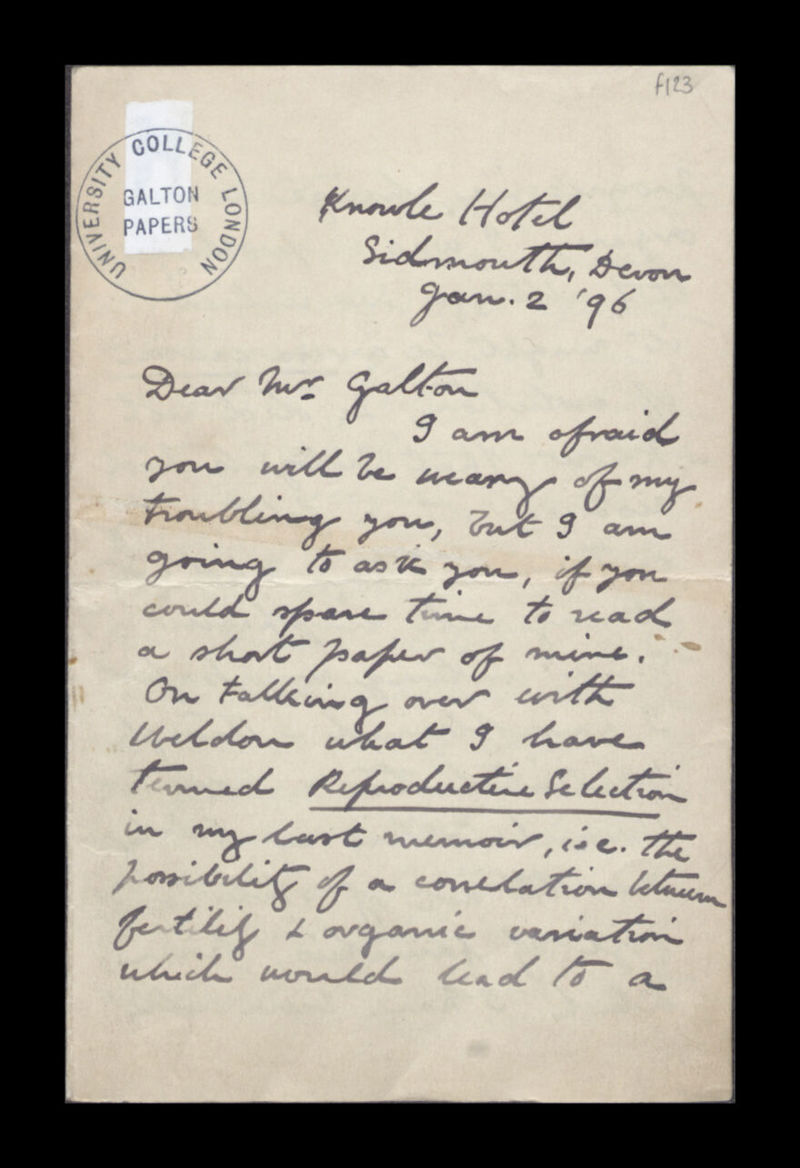 f123
UNIVERSITY COLLEGE LONDON
GALTON
PAPERS
Knowle Hotel
Sidmouth, Devon
Jan. 2 '96
Dear Mr. Galton
I am afraid
you will be weary of my
troubling you, but I am
going to ask you, if you
could spare time to read
a short paper of mine.
On talking over with
Weldon what I have
termed Reproductive Selection
in my last memoir, i.e. the
possibility of a correlation between
fertility & organic variation
which would lead to a